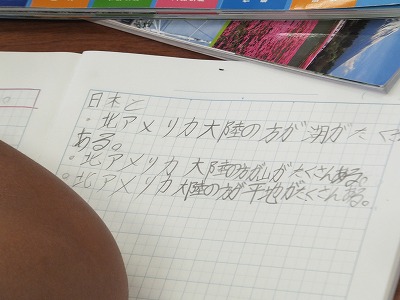 日本と
・北アメリカ大陸の方が湖がたくさ
ある。
・北アメリカ 大陸の方が山がたくさんある。
・北アメリカ大陸の方が平地がたくさんある。